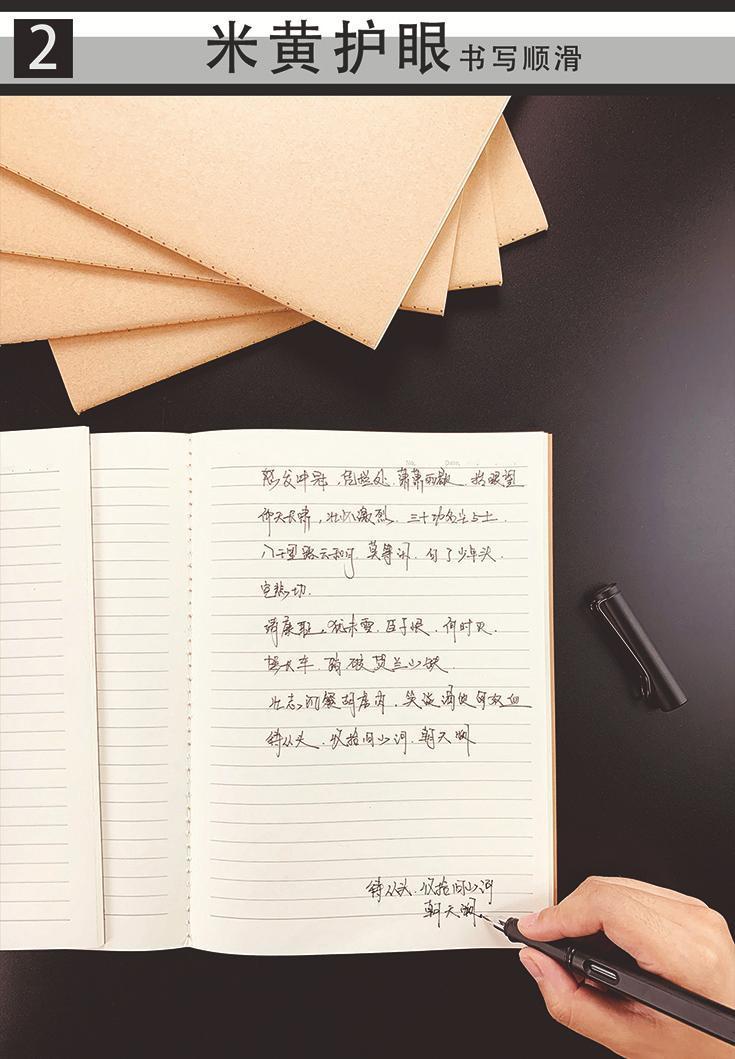 2
米黄护眼 书写顺滑
No. Date.
怒发冲冠,凭栏处.萧萧雨歇 抬眼望
仰天长啸,壮怀激烈.三十功名尘与土.
八千里路云和月.莫等闲.白了少年头.
空悲切.
靖康耻.犹未雪.臣子恨.何时灭.
驾长车.踏破贺兰山缺.
壮志饥餐胡虏肉.笑谈渴饮匈奴血
待从头.收拾旧山河.朝天阙
待从头.收拾旧山河
朝天阙.